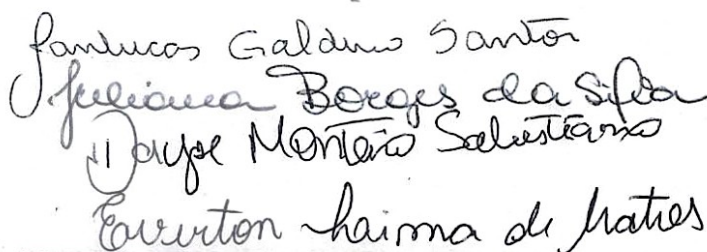 Janlucas Galdino Santos
Juliana Borges da Silva
Dayse Monteiro Salustiano
Everton Laisma de Matos